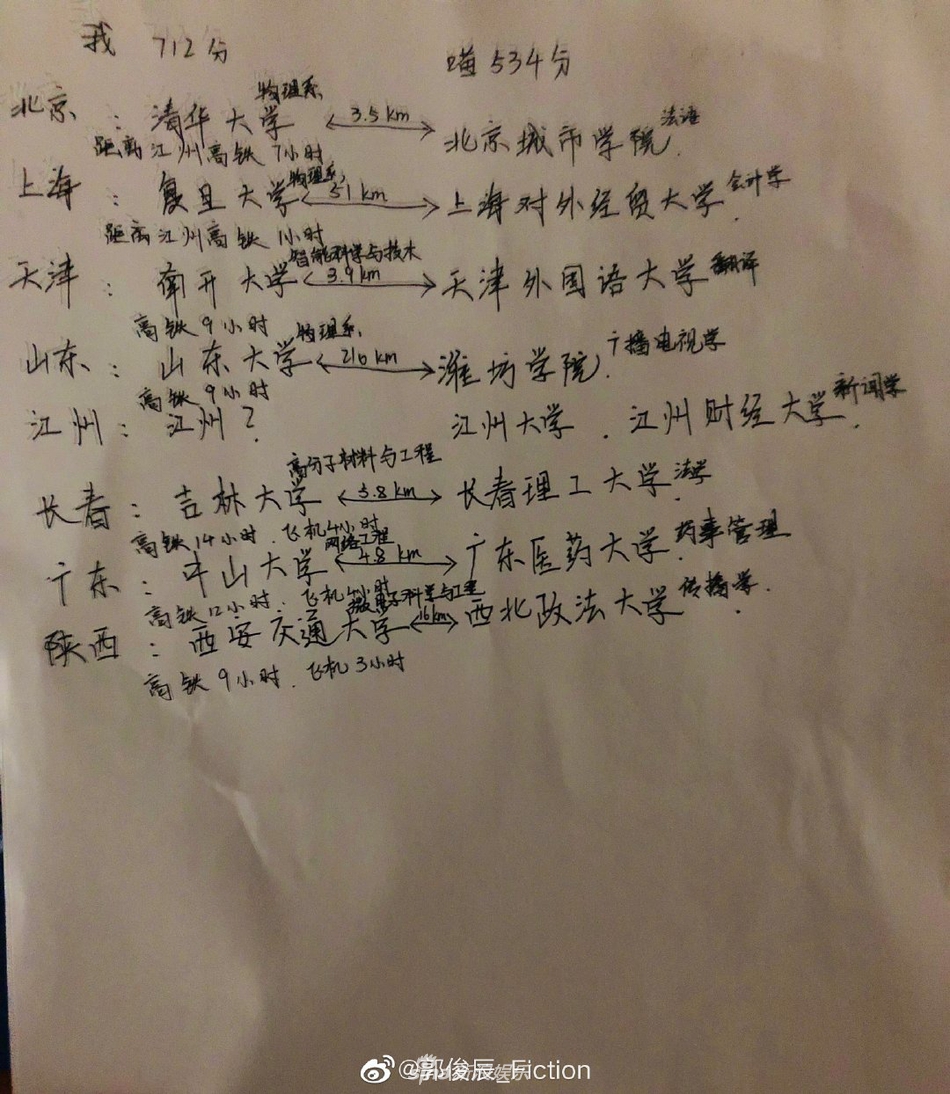 我 712分 喵 534分
物理系
北京：清华大学 3.5km 北京城市学院. 法语
距离江州高铁7小时
物理系
上海：复旦大学 51km 上海对外经贸大学. 会计学
距离江州高铁1小时
智能科学与技术
天津：南开大学 3.9km 天津外国语大学 翻译
高铁9小时
物理系
山东：山东大学 216km 潍坊学院. 广播电视学
高铁9小时
江州：江州？ 江州大学．江州财经大学. 新闻学
高分子材料与工程
长春：吉林大学 5.8km 长春理工大学. 法学
高铁14小时．飞机4小时
网络工程
广东：中山大学 4.8km 广东医药大学. 药事管理
高铁12小时．飞机4小时
科学与工程
陕西：西安交通大学 16km 西北政法大学 传播学.
高铁9小时．飞机3小时
@郭俊辰_Fiction